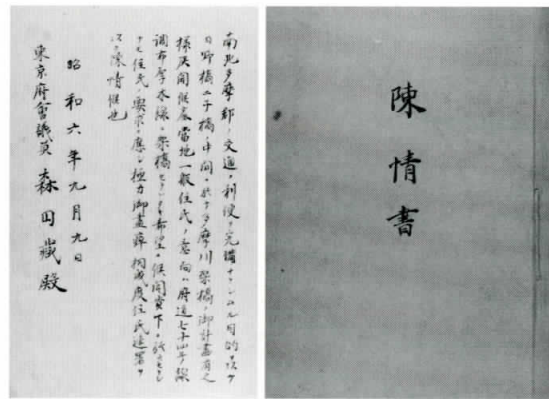 陳情書
南北多摩郡ノ交通ノ利便ヲ完備ナラシムル目的ヲ以テ
日野橋二子橋ノ中間ニ於テ多摩川架橋ノ御計畫有之
様及聞候處當地一般住民ノ意向ハ府道七十四号線
調布厚木線ニ架橋セラレン事希望ニ候間貴下ニ於カセラレ
テモ住民ノ要求ニ應シ極力御盡力相成度住民連署ヲ
以テ陳情候也
昭和六年九月九日
東京府會議員 森田藏殿